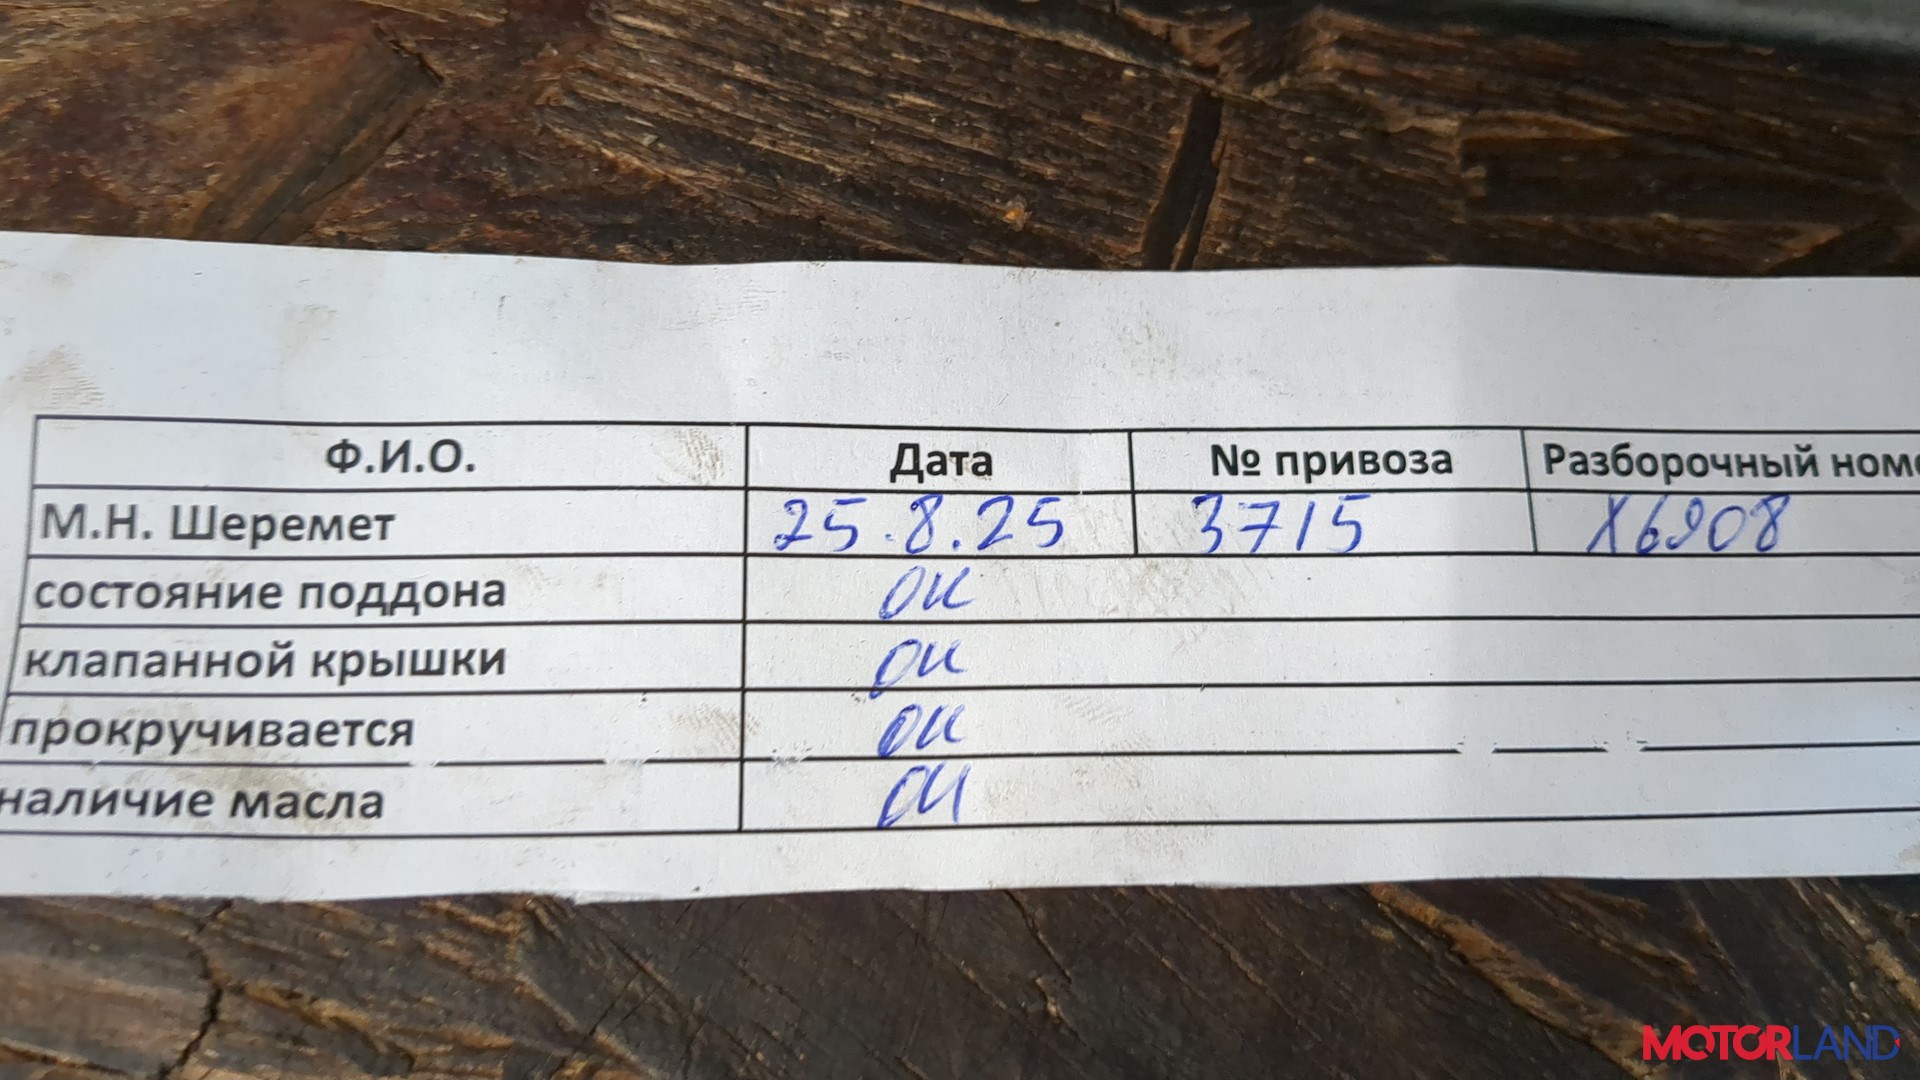 Ф.И.О. Дата № привоза Разборочный номе
М.Н. Шеремет 25.8.25 3715 X6908
состояние поддона ок
клапанной крышки ок
прокручивается ок
наличие масла ок
MOTORLAND